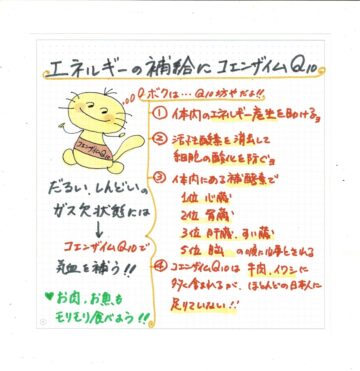 エネルギーの補給にコエンザイムQ10
ボクは…Q10坊やだよ!!
コエンザイムQ10
① 体内のエネルギー産生を助ける。
② 活性酸素を消去して
細胞の酸化を防ぐ。
③ 体内にある補酵素で
1位 心臓
2位 腎臓
3位 肝臓、すい臓
5位 脳 の順に必要とされる
④ コエンザイムQ10は 牛肉、イワシに
多く含まれるが、ほとんどの日本人に
足りていない!!
だるい、しんどいの
ガス欠状態には
↓
コエンザイムQ10で
気血を補う!!
♥お肉、お魚も
モリモリ食べよう!!